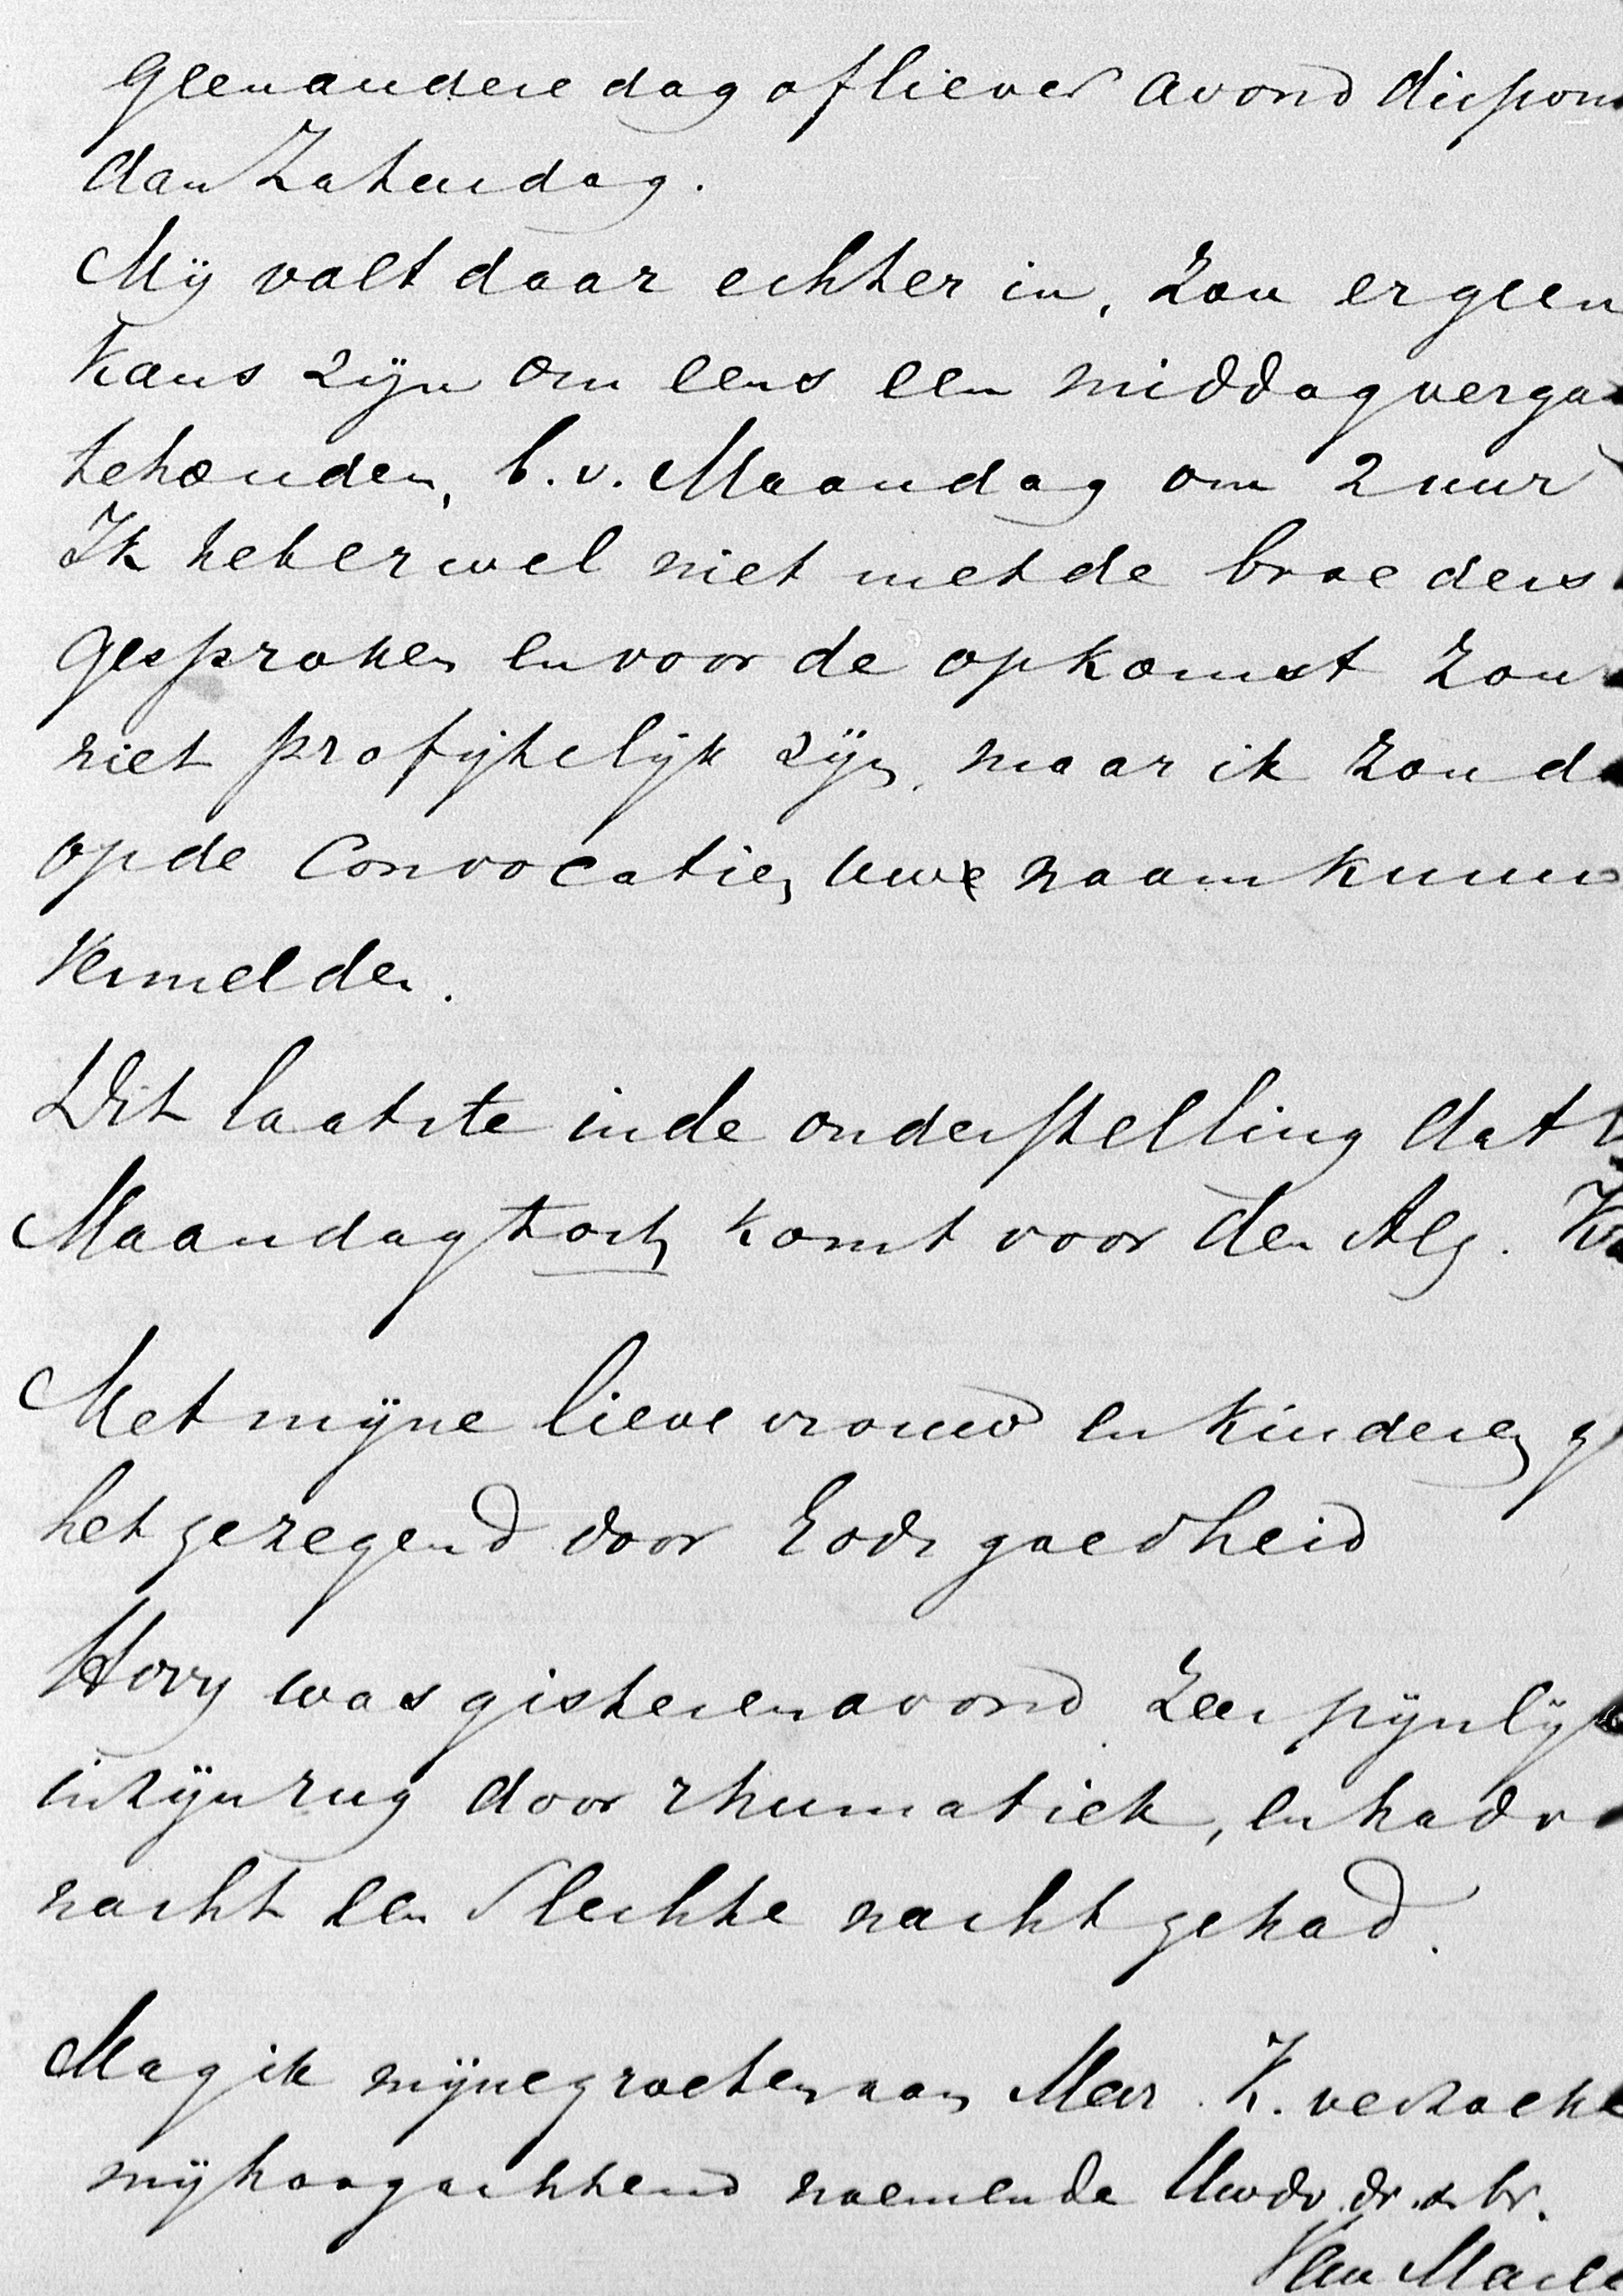 geen andere dag of liever avond dispon
dan Zaterdag.
Mij valt daar echter in, zou er geen
kans zijn om eens een middagverga
te houden, b.v. Maandag om 2 uur
Ik heb er wel niet met de broeders
gesproken en voor de opkomst zou
niet profijtelijk zijn, maar ik zou d
op de Convocatien uwe naam kunnen
vermelden.
Dit laatste in de onderstelling dat
Maandag toch komt voor den Alg. K
Met mijne lieve vrouw en kinderen g
het gezegend door Gods goedheid
Hovy was gisterenavond zeer pijnlijk
in zijn rug door rhumatiek, en had v
nacht een slechte nacht gehad.
Mag ik mijne groeten aan Mevr. K. verzoeke
mij hoogachtend noemende Uwdv. dr. & br.
Van Marle